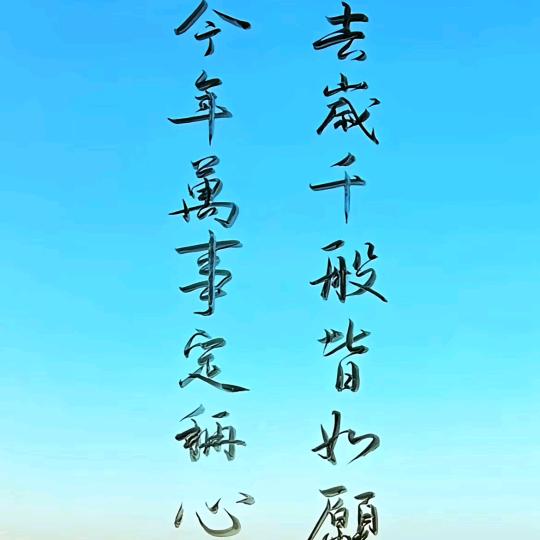 去歲千般皆如願
今年萬事定稱心